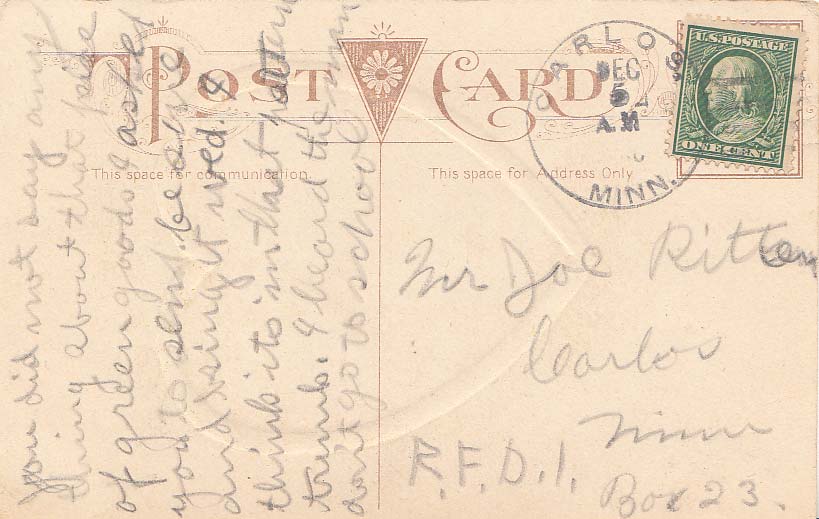 POST CARD
This space for communication.
This space for Address Only
CARLOS
DEC
5
A.M
MINN.
U.S. POSTAGE
ONE CENT
Mr Joe Ritten
Carlos
Minn
R.F.D.1.
Box 23.
you did not say any
thing about that piece
of green goods I asked
you to send because
and bring it wed. I
think its in that pattern
trunk. I heard the man
don't go to school